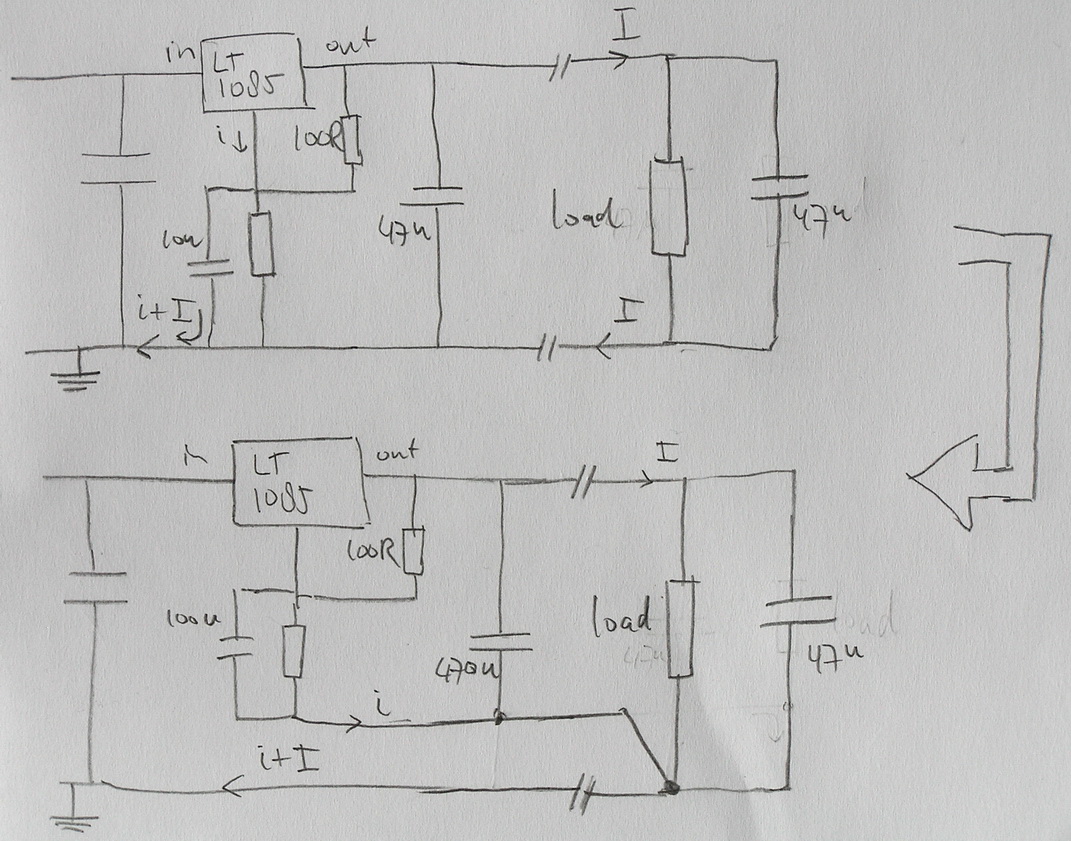 I
in
out
LT
1085
i
100R
load
47u
47u
10u
i+I
I
in
out
I
LT
1085
100R
100u
load
470u
47u
i
i+I